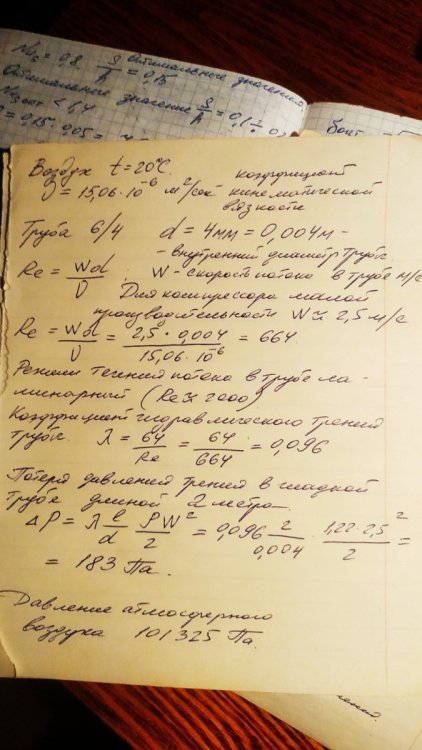 N₃ = 0,8. S/h = 0,15 Оптимальные значения
Оптимальные значение S/h = 0,1÷
N₃опт < 1,4
= 0,15·0,05 =
Воздух t = 20°C. коэффициент
ν = 15,06·10⁻⁶ м²/сек кинематической
вязкости
Труба 6/4 d = 4мм = 0,004м –
– внутренний диаметр трубы
Re = Wd/ν ; W – скорость потока в трубе м/с
Для компрессора малой
производительности W ≃ 2,5 м/с
Re = Wd/ν = 2,5·0,004/15,06·10⁻⁶ = 664
Режим течения потока в трубе ла-
минарный (Re ≤ 2000)
Коэффициент гидравлического трения
трубы. λ = 64/Re = 64/664 = 0,096
Потеря давления трения в гладкой
трубе длиной 2 метра
ΔP = λ l/d ρW²/2 = 0,096 2/0,004 · 1,22·2,5²/2 =
= 183 Па.
Давление атмосферного
воздуха 101325 Па.